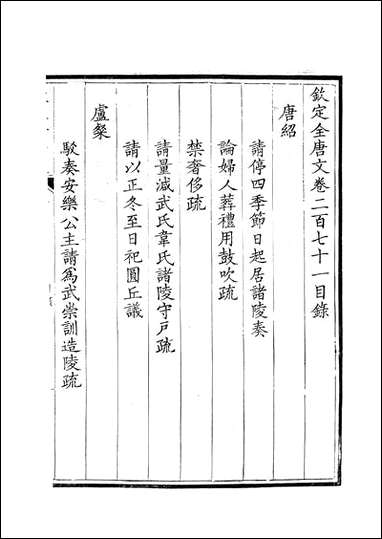 欽定全唐文卷二百七十一目錄
唐紹
請停四季節日起居諸陵奏
論婦人葬禮用鼓吹疏
禁奢侈疏
請量減武氏韋氏諸陵守戶疏
請以正冬至日祀圓丘議
盧粲
駁奏安樂公主請為武崇訓造陵疏